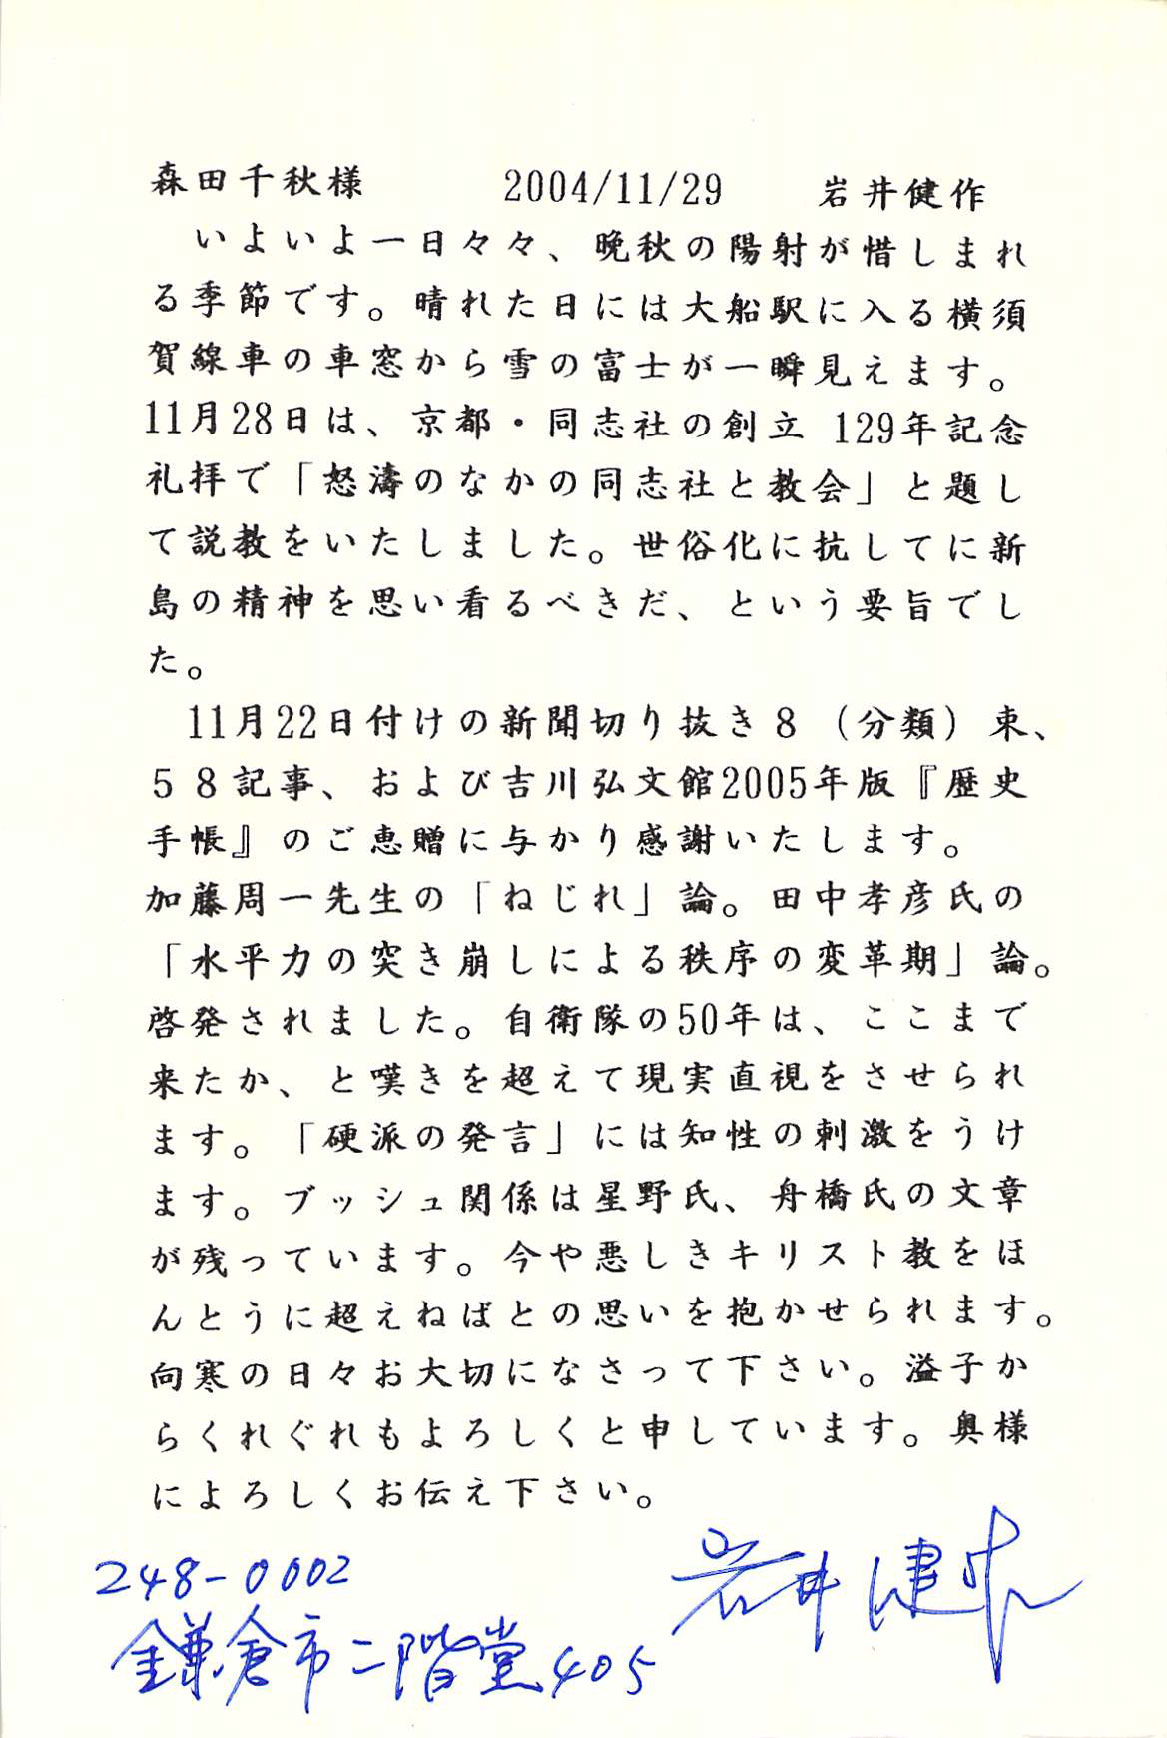 森田千秋様　2004/11/29　岩井健作
いよいよ一日々々、晩秋の陽射が惜しまれ
る季節です。晴れた日には大船駅に入る横須
賀線車の車窓から雪の富士が一瞬見えます。
11月28日は、京都・同志社の創立 129年記念
礼拝で「怒濤のなかの同志社と教会」と題し
て説教をいたしました。世俗化に抗してに新
島の精神を思い看るべきだ、という要旨でし
た。
11月22日付けの新聞切り抜き８（分類）束、
５８記事、および吉川弘文館2005年版『歴史
手帳』のご恵贈に与かり感謝いたします。
加藤周一先生の「ねじれ」論。田中孝彦氏の
「水平力の突き崩しによる秩序の変革期」論。
啓発されました。自衛隊の50年は、ここまで
来たか、と嘆きを超えて現実直視をさせられ
ます。「硬派の発言」には知性の刺激をうけ
ます。ブッシュ関係は星野氏、舟橋氏の文章
が残っています。今や悪しきキリスト教をほ
んとうに超えねばとの思いを抱かせられます。
向寒の日々お大切になさって下さい。溢子か
らくれぐれもよろしくと申しています。奥様
によろしくお伝え下さい。
248-0002
鎌倉市二階堂405
岩井健作